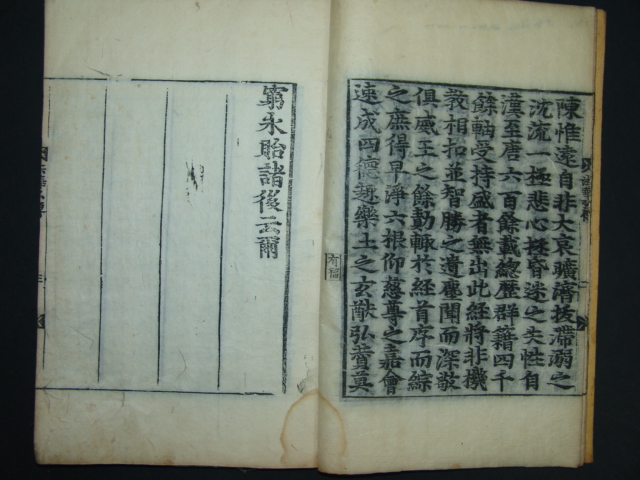 陳惟遠自非大哀曠濟拔滯溺之
沈流一極悲心拯昏迷之失性自
漢至唐六百餘載總歷群籍四千
餘軸受持盛者無出此經將非機
敎相扣並智勝之遺塵聞而深敬
俱威王之餘勣輙於經首序而綜
之庶得早淨六根仰慈尊之嘉會
速成四德趣樂土之玄猷弘賛莫
窮永貽諸後云爾
有福